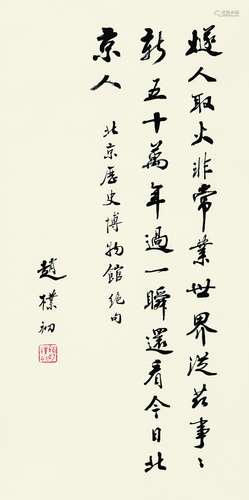 燧人取火非常業世界從茲事〻
新五十萬年過一瞬還看今日北
京人
北京歷史博物館絶句
趙樸初